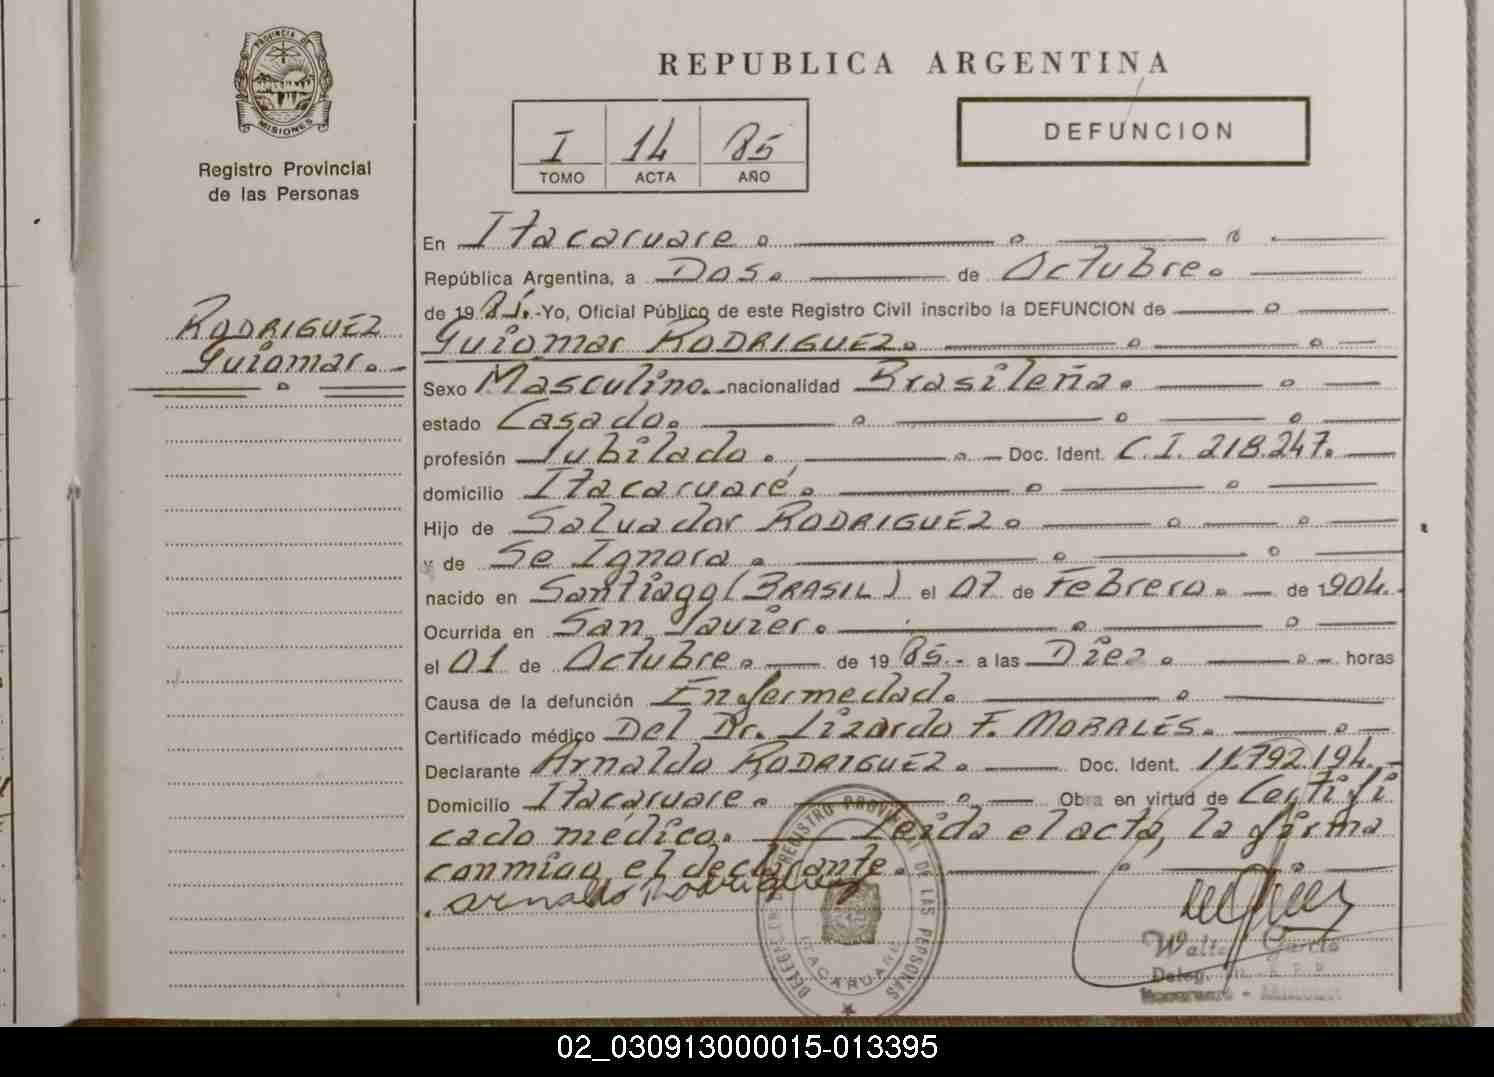 PROVINCIA DE
MISIONES
Registro Provincial
de las Personas
RODRIGUEZ
Guiomar.
REPUBLICA ARGENTINA
I 14 85
TOMO ACTA AÑO
DEFUNCION
En Itacaruare
República Argentina, a Dos. de Octubre.
de 1985.-Yo, Oficial Público de este Registro Civil inscribo la DEFUNCION de
Guiomar RODRIGUEZ.
Sexo Masculino. nacionalidad Brasileña.
estado Casado.
profesión Jubilado. Doc. Ident. C.I. 218.247.
domicilio Itacaruaré.
Hijo de Salvador RODRIGUEZ
y de Se Ignora.
nacido en Santiago (BRASIL) el 07 de Febrero. de 1904.
Ocurrida en San Javier.
el 01 de Octubre. de 1985.- a las Diez. horas
Causa de la defunción Enfermedad.
Certificado médico Del Dr. Lizardo F. MORALES.
Declarante Arnaldo RODRIGUEZ. Doc. Ident. 11.792.194.-
Domicilio Itacaruare. Obra en virtud de Certifi
cado médico. Leida el acta, la firma
conmigo el declarante.
Arnaldo Rodriguez
REGISTRO PROVINCIAL DE LAS PERSONAS
ITACARUARE
Walter García
Deleg.
02_030913000015-013395